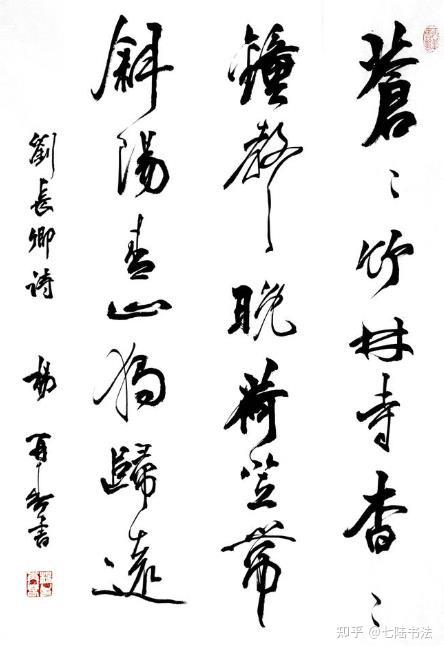 蒼〻竹林寺杳〻
鐘聲晚荷笠帶
斜陽青山獨歸遠
劉長卿詩 楊再春書
知乎 @七陆书法